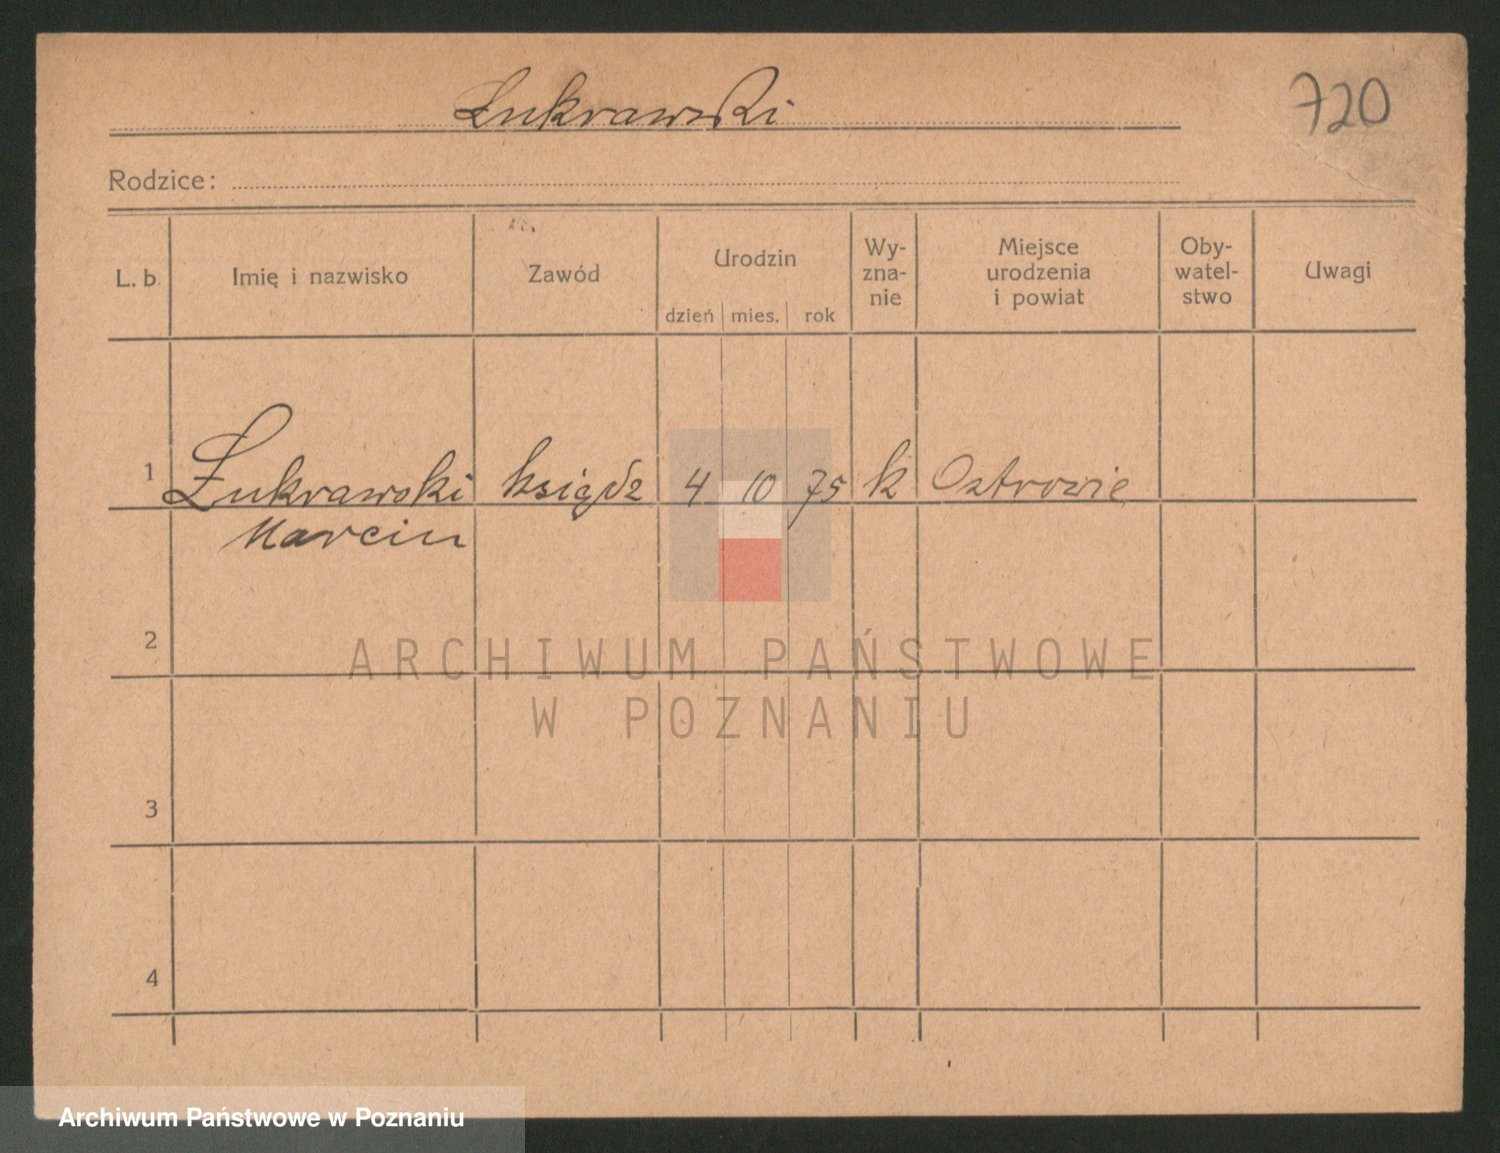 Łukrawski
720
Rodzice:
L. b.
Imię i nazwisko
Zawód
Urodzin
dzień mies. rok
Wy-
zna-
nie
Miejsce
urodzenia
i powiat
Oby-
watel-
stwo
Uwagi
1 Łukrawski ksiądz 4 10 75 k Ostrowie
Marcin
2
3
4
ARCHIWUM PAŃSTWOWE
W POZNANIU
Archiwum Państwowe w Poznaniu